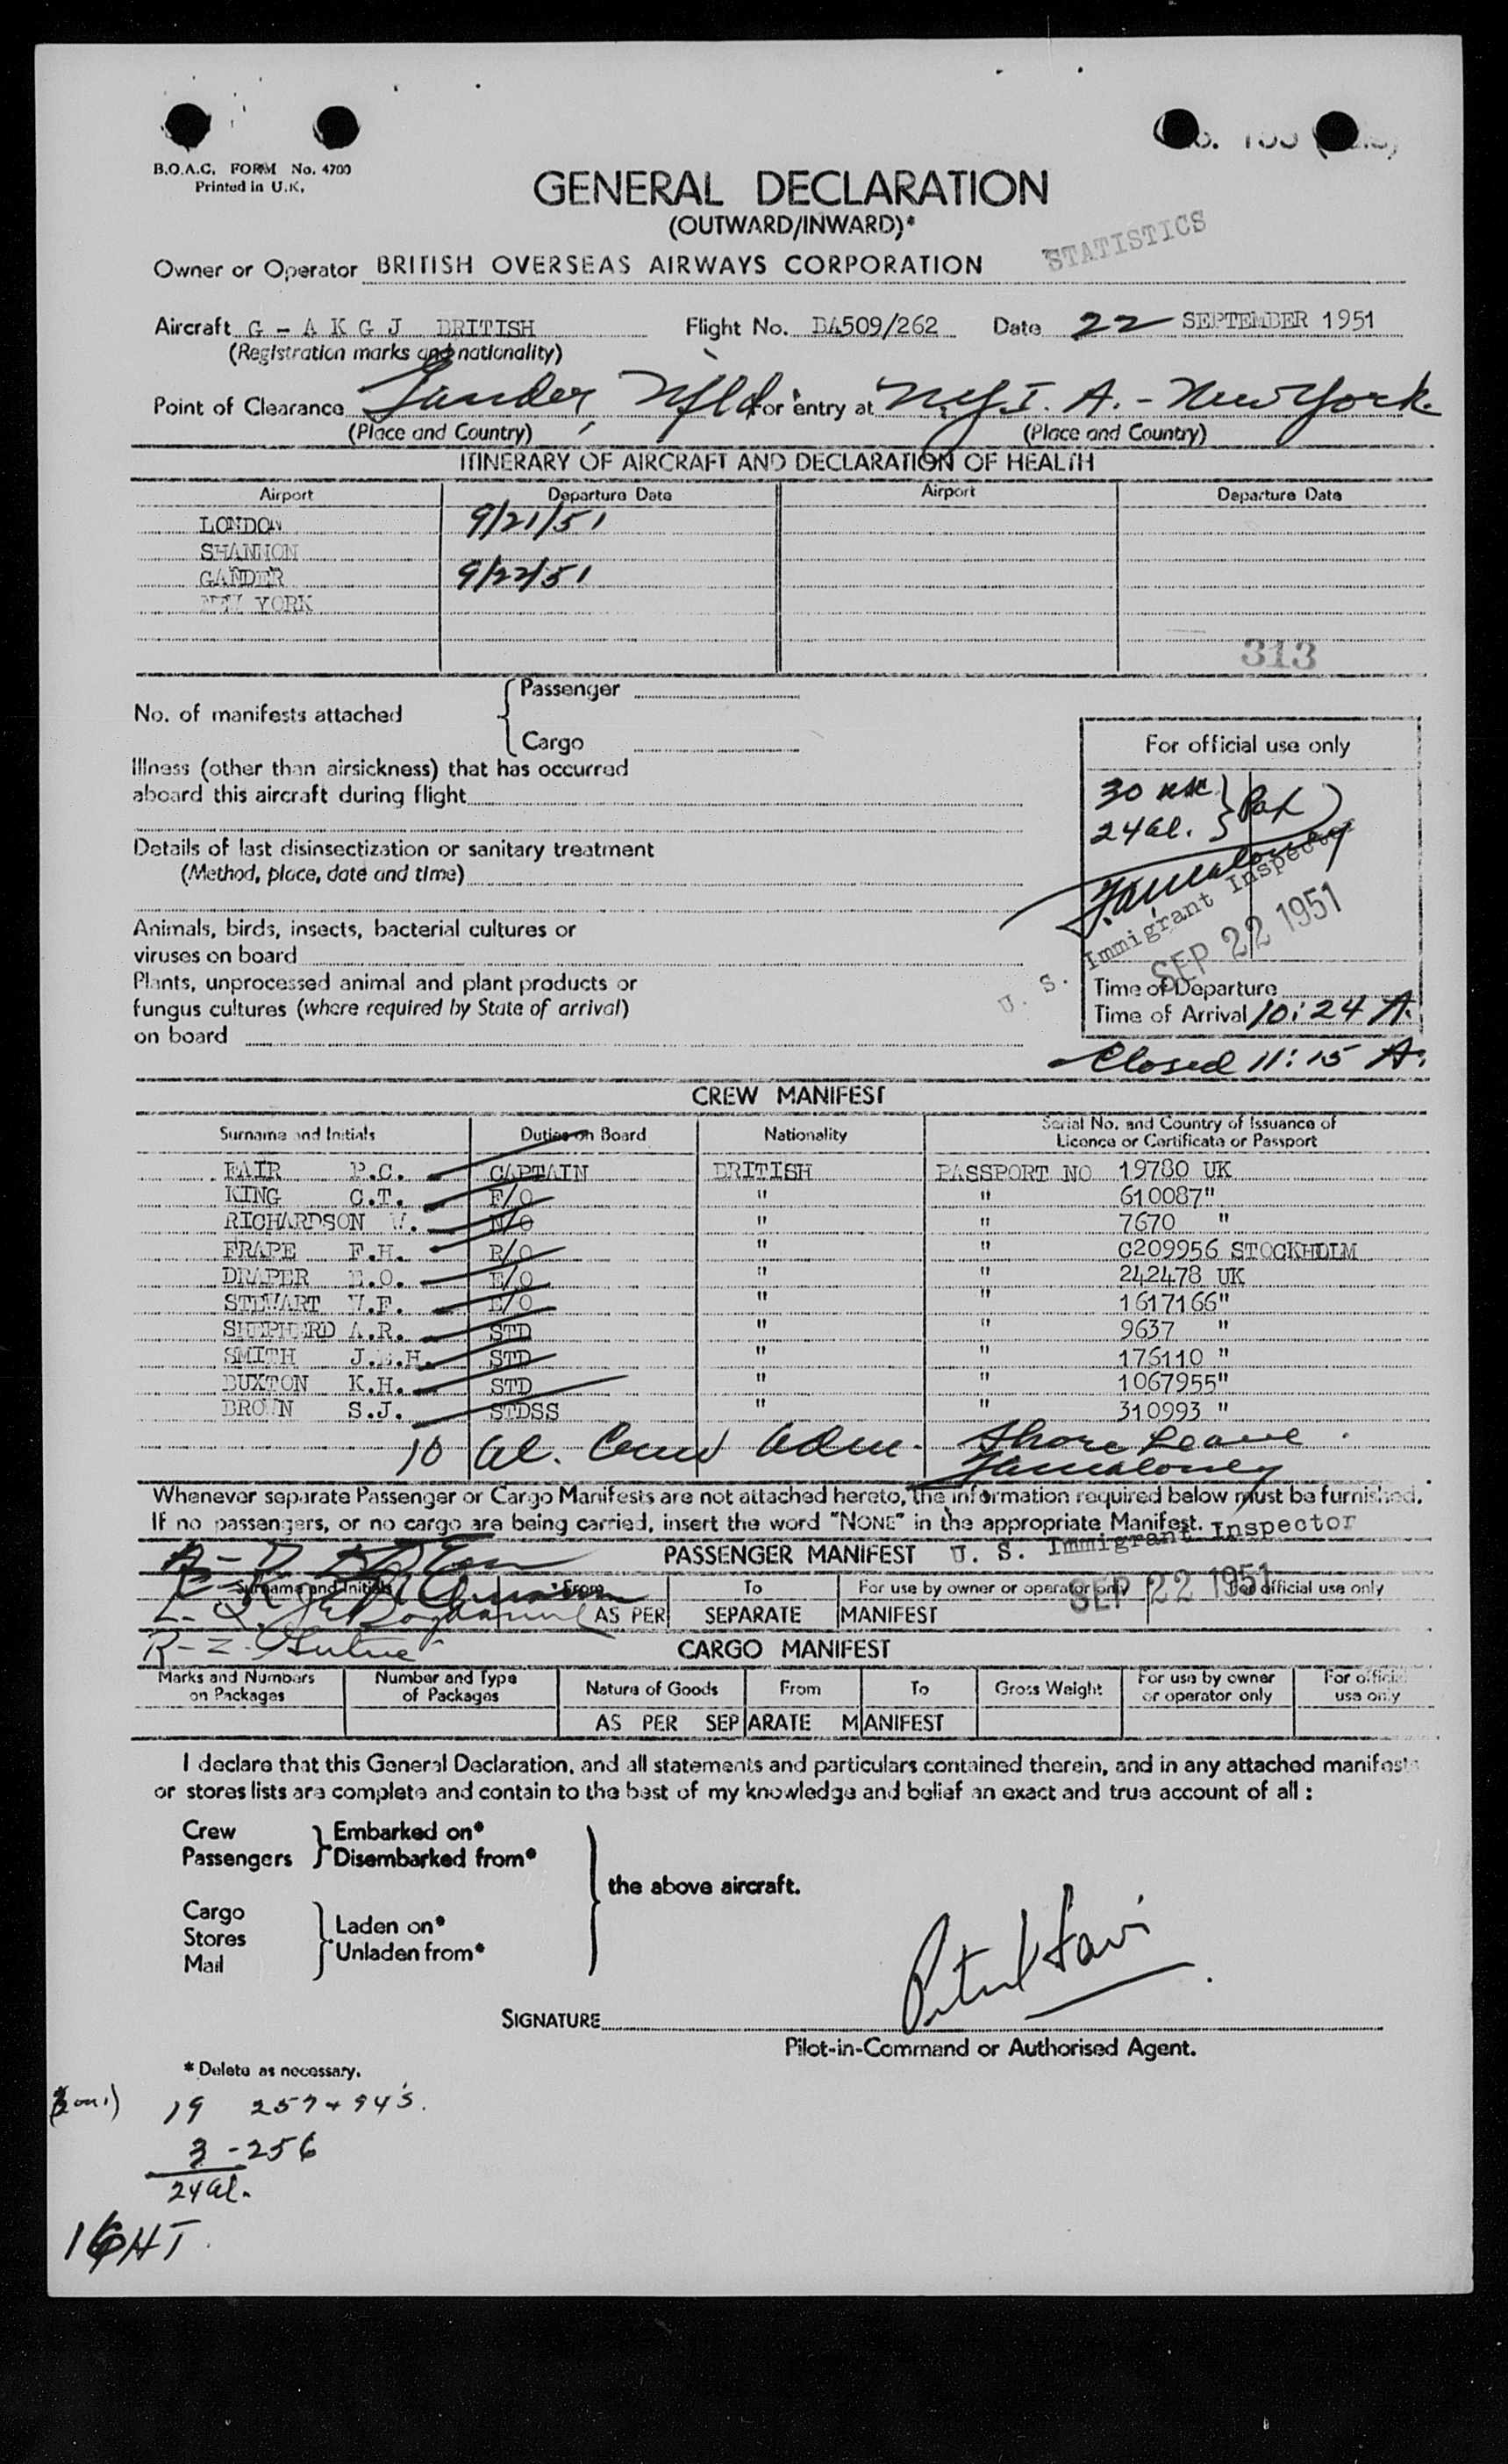 B.O.A.C. FORM No. 4700
Printed in U.K.
GENERAL DECLARATION
(OUTWARD/INWARD)*
STATISTICS
Owner or Operator BRITISH OVERSEAS AIRWAYS CORPORATION
Aircraft G - A K G J BRITISH Flight No. BA509/262 Date 22 SEPTEMBER 1951
(Registration marks and nationality)
Point of Clearance Gander, Nfld For entry at N.Y.I.A. - New York
(Place and Country) (Place and Country)
ITINERARY OF AIRCRAFT AND DECLARATION OF HEALTH
Airport Departure Date Airport Departure Date
LONDON 9/21/51
SHANNON
GANDER 9/22/51
NEW YORK
313
No. of manifests attached { Passenger
Cargo
For official use only
Illness (other than airsickness) that has occurred
aboard this aircraft during flight
30
24 al. } Pax
Details of last disinsectization or sanitary treatment
(Method, place, date and time)
U. S. Immigrant Inspector
SEP 22 1951
Animals, birds, insects, bacterial cultures or
viruses on board
Plants, unprocessed animal and plant products or
fungus cultures (where required by State of arrival)
on board
Time of Departure
Time of Arrival 10:24 A.
Closed 11:15 A.
CREW MANIFEST
Surname and Initials Duties on Board Nationality Serial No. and Country of Issuance of
Licence or Certificate or Passport
FAIR P.C. CAPTAIN BRITISH PASSPORT NO 19780 UK
KING C.T. F/O " " 610087 "
RICHARDSON W. N/O " " 7670 "
FRAPE F.H. R/O " " C209956 STOCKHOLM
DRAPER E.O. E/O " " 242478 UK
STEWART W.F. E/O " " 1617166 "
SHEPHERD A.R. STD " " 9637 "
SMITH J.E.H. STD " " 176110 "
BUXTON K.H. STD " " 1067955 "
BROWN S.J. STDSS " " 310993 "
10 al. Crew adm. Shore Leave
Whenever separate Passenger or Cargo Manifests are not attached hereto, the information required below must be furnished.
If no passengers, or no cargo are being carried, insert the word "NONE" in the appropriate Manifest.
U. S. Immigrant Inspector
PASSENGER MANIFEST
SEP 22 1951
Surname and Initials From To For use by owner or operator only For official use only
AS PER SEPARATE MANIFEST
CARGO MANIFEST
Marks and Numbers on Packages Number and Type of Packages Nature of Goods From To Gross Weight For use by owner or operator only For official use only
AS PER SEPARATE MANIFEST
I declare that this General Declaration, and all statements and particulars contained therein, and in any attached manifests
or stores lists are complete and contain to the best of my knowledge and belief an exact and true account of all :
Crew } Embarked on*
Passengers } Disembarked from*
the above aircraft.
Cargo
Stores } Laden on*
Mail } Unladen from*
SIGNATURE
Pilot-in-Command or Authorised Agent.
* Delete as necessary.
19 257 + 94's.
3 - 256
24 al.